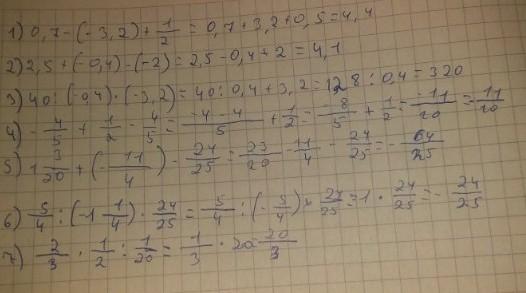 1) 0,7-(-3,2)+1/2=0,7+3,2+0,5=4,4
2) 2,5+(-0,4)-(-2)=2,5-0,4+2=4,1
3) 40:(-0,4)·(-3,2)=40:0,4+3,2=128:0,4=320
4) -4/5+1/2-4/5=(-4-4)/5+1/2=-8/5+1/2=-11/10=-11/10
5) 1 3/20+(-11/4)-24/25=23/20-11/4-24/25=-64/25
6) 5/4:(-1 1/4)·24/25=5/4:(-5/4)·24/25=-1·24/25=-24/25
7) 2/3·1/2:1/20=1/3·20=20/3